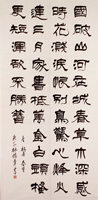 國破山河在城春草木深感
時花濺淚恨別鳥驚心烽火
連三月家書抵萬金白頭搔
更短渾欲不勝簪
杜甫 春望